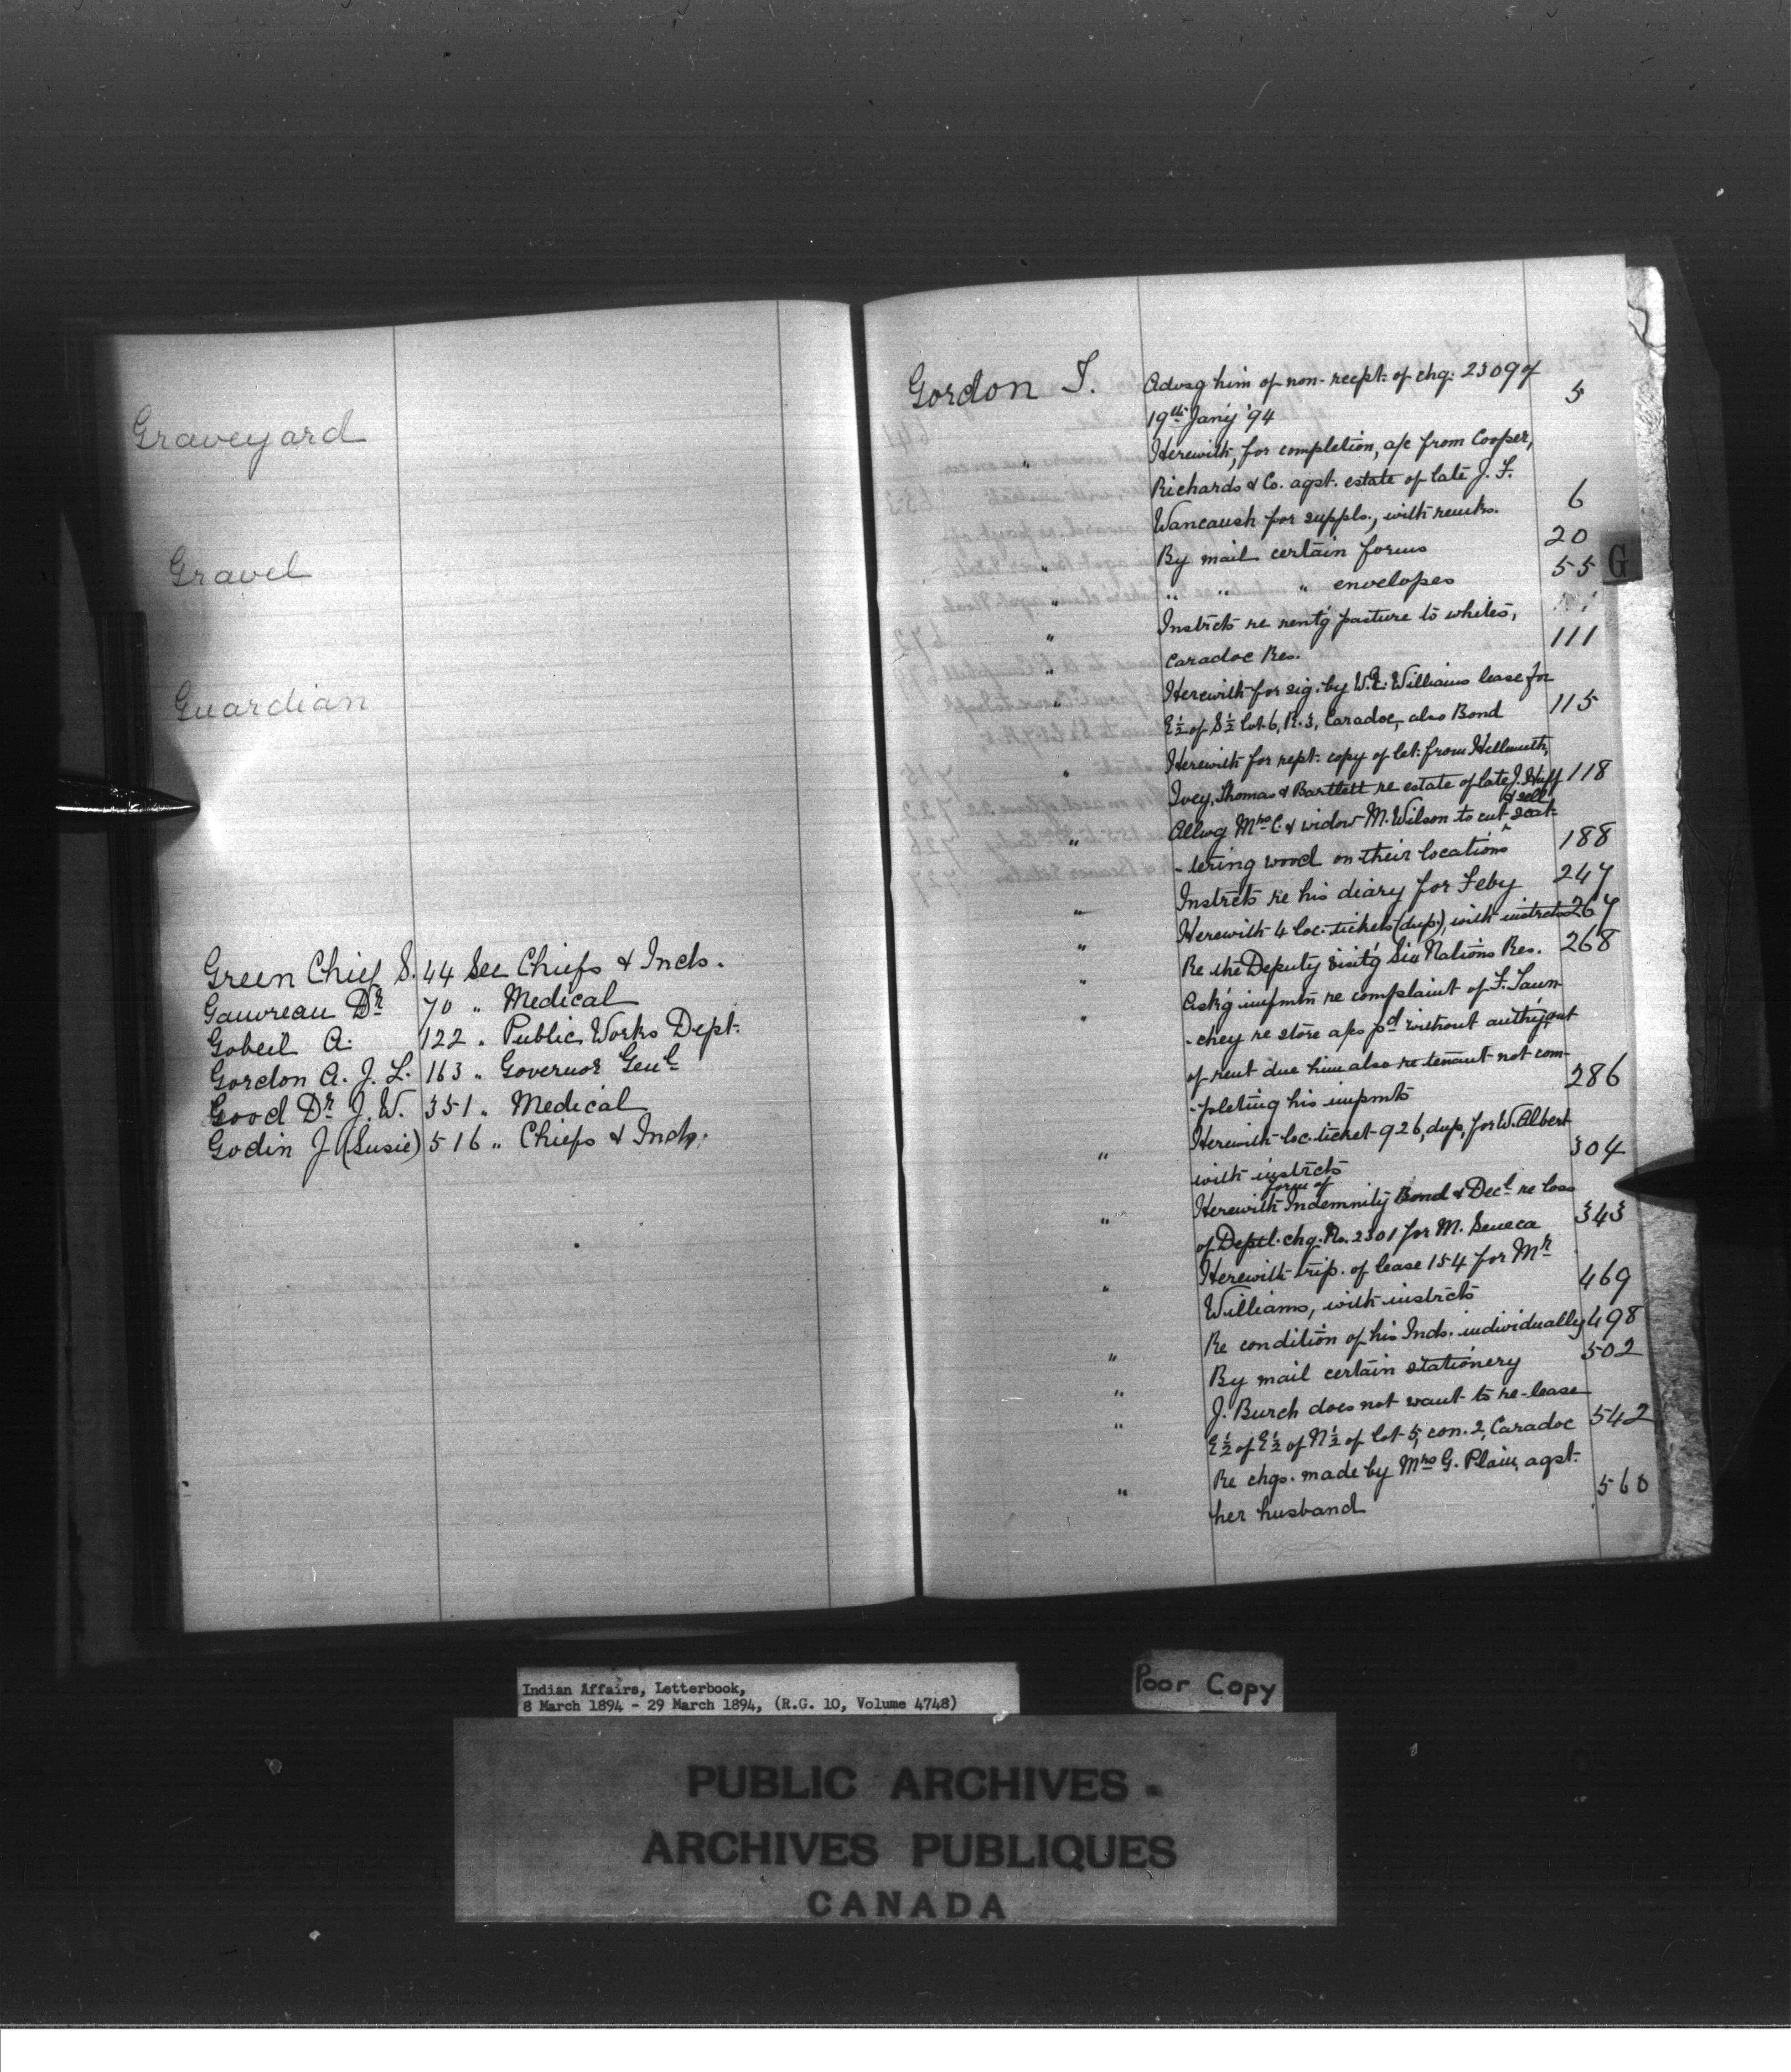 Graveyard
Gravel
Guardian
Green Chief S. 44 See Chiefs & Inds.
Gauvreau Dr 70 " Medical
Gobeil A. 122 " Public Works Dept.
Gordon A. J. L. 163 " Governor Genl
Good Dr J. W. 351 " Medical
Godin J (Susie) 516 " Chiefs & Inds.
Gordon T. Advsg him of non-recpt. of chq. 2309 of
19th Jany '94 5
" Herewith, for completion, a/c from Cooper,
Richards & Co. agst. estate of late J. F.
Wancaush for suppls., with remks. 6
" By mail certain forms 20
" " " " envelopes 55
" Instrcts re rent'g pasture to whites,
Caradoc Res. 111
" Herewith for sig. by W. Williams lease for
E½ of S½ lot 6, R. 3, Caradoc, also Bond 115
" Herewith for rept. copy of let. from Hellmuth,
Ivey, Thomas & Bartlett re estate of late J. Huff 118
" Allwg Mrs C. & widow M. Wilson to cut & sell scat-
-tering wood on their locations 188
" Instrcts re his diary for Feby 247
" Herewith 4 loc. tickets (dup.), with instrcts 267
" Re the Deputy visit'g Six Nations Res. 268
" Ask'g infmtn re complaint of F. Taun-
-chey re store a/cs pd without auth'y out
of rent due him also re tenant not com-
-pleting his impmts 286
" Herewith loc. ticket 926, dup, for W. Albert
with instrcts 304
" Herewith form of Indemnity Bond & Decl re loss
of Deptl. chq. No. 2301 for M. Seneca 343
" Herewith trip. of lease 154 for Mr
Williams, with instrcts 469
" Re condition of his Inds. individually 498
" By mail certain stationery 502
" J. Burch does not want to re-lease
E½ of E½ of N½ of lot 5, con. 2, Caradoc 542
" Re chgs. made by Mrs G. Plain agst.
her husband 560
G
Indian Affairs, Letterbook,
8 March 1894 - 29 March 1894, (R.G. 10, Volume 4748)
Poor Copy
PUBLIC ARCHIVES
ARCHIVES PUBLIQUES
CANADA